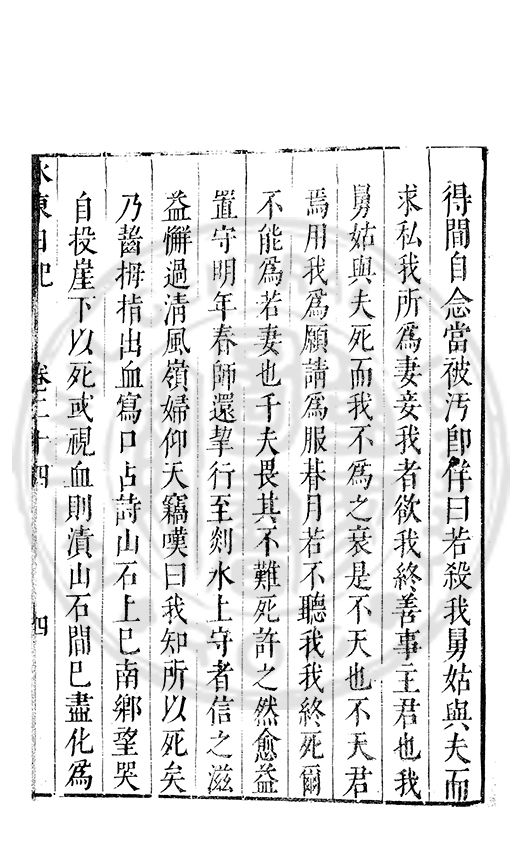 得間自念當被汚卽佯曰若殺我舅姑與夫而
求私我所爲妻妾我者欲我終善事主君也我
舅姑與夫死而我不爲之衰是不天也不天君
焉用我爲願請爲服朞月若不聽我我終死爾
不能爲若妻也千夫畏其不難死許之然愈益
置守明年春師還挈行至剡水上守者信之滋
益懈過淸風嶺婦仰天竊嘆曰我知所以死矣
乃齧拇指出血寫口占詩山石上巳南鄉望哭
自投崖下以死或視血則漬山石間巳盡化爲
水東日記 卷二十四 四